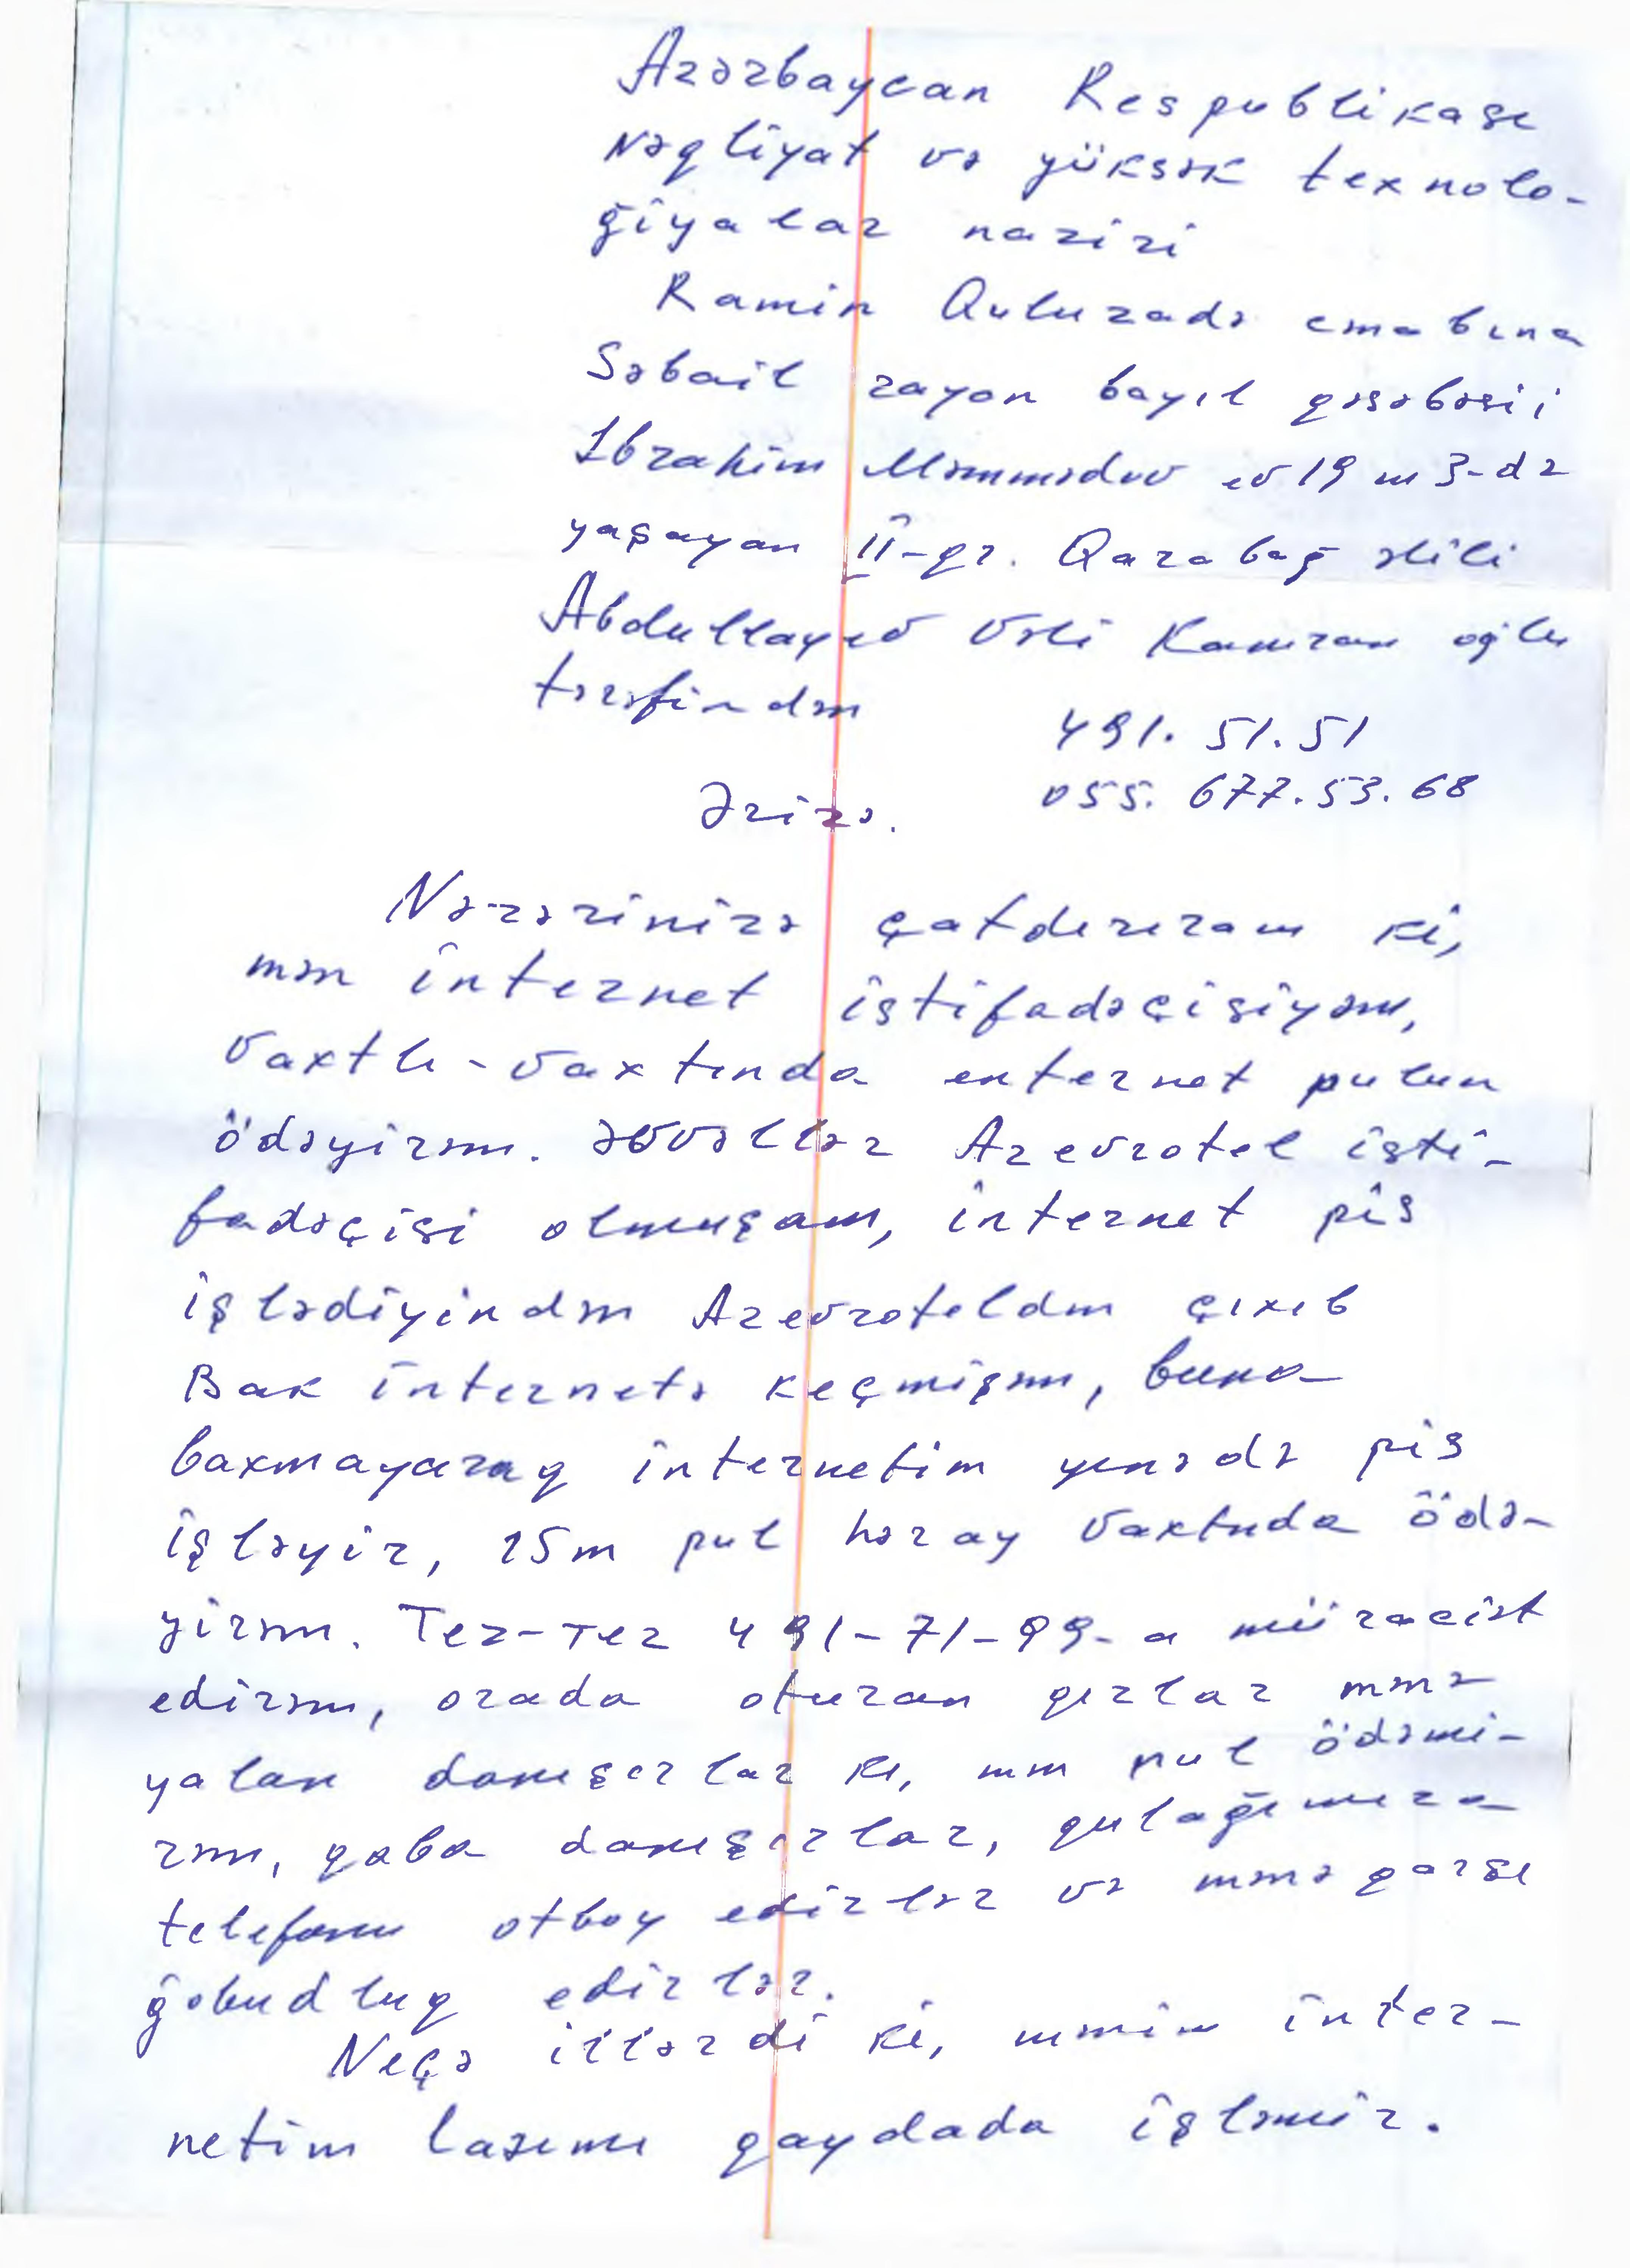 Azərbaycan Respublikası
Nəqliyat və yüksək texnolo-
ğiyalar naziri
Ramin Quluzadə cənabına
Səbail rayon bayıl qəsəbəsi
İbrahim Məmmədov ev 19 m 3-də
yaşayan II-qr. Qarabağ əlili
Abdullayev Vəli Kamran oğlu
tərəfindən
491. 51. 51
055. 677. 53. 68
Ərizə.
Nəzərinizə çatdırıram ki,
mən internet iştifadəçisiyəm,
Vaxtlı-vaxtında enternet pulun
ödəyirəm. əvvəllər Azevrotel işti-
fadəçisi olmuşam, internet pis
işlədiyindən Azevroteldən çıxıb
Bak internetə keçmişəm, buna
baxmayaraq internetim yenədə pis
işləyir, 25m pul hər ay vaxtında ödə-
yirəm. Tez-Tez 491-71-99-a müraciət
edirəm, orada oturan qızlar mənə
yalan danışırlar ki, mən pul ödəmi-
rəm, qaba danışırlar, qulağımıza
telefonu otboy edirlər və mənə qarşı
ğobudluq edirlər.
Neçə illərdi ki, mənim inter-
netim lazımı qaydada işləmir.